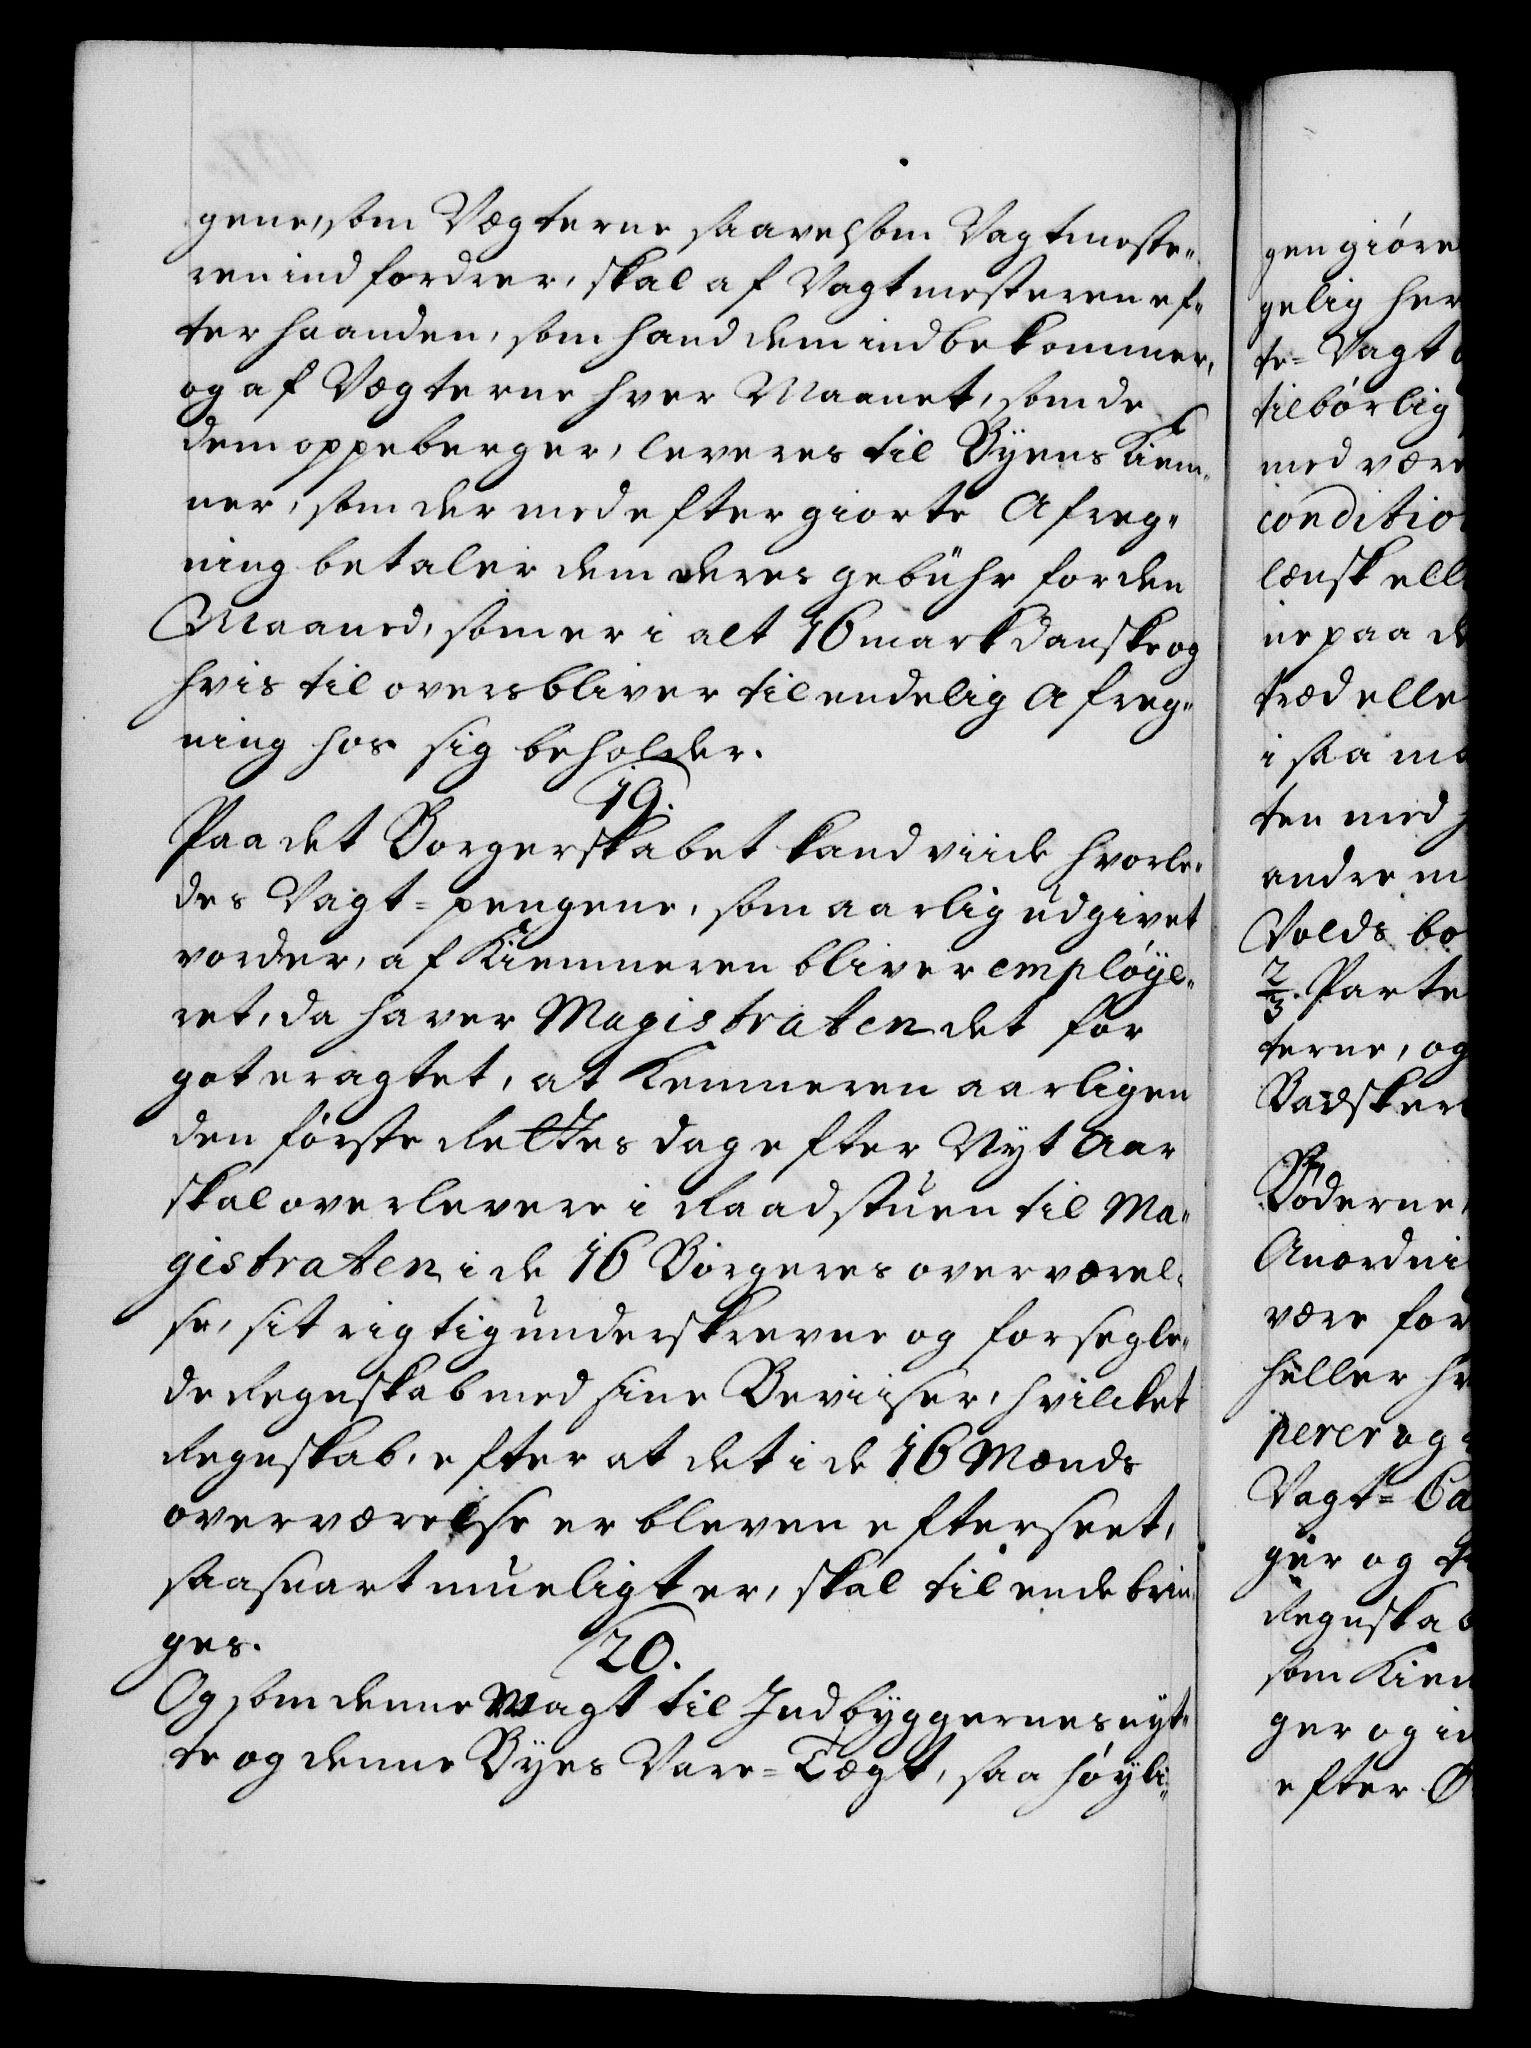 gene, som Vegterne saavelsom Vagtmeste„
ren ind fordrer, skal af Vagtmesteren ef„
ter haanden, som hand dem ind bekommer,
og af Vegterne hver Maanet, som de
dem oppeberger, leveres til Byens Kiem„
ner, som der med efter giorte Afreg„
ning betaler dem deres gebühr for den
Maaned, som er i alt 16 mark danske og
hvis til overs bliver til endelig Afreg„
ning hos sig beholder.
19.
Paa det Borgerskabet kand viide hvorle„
des Vagt=pengene, som aarlig udgivet
vorder, af Kiemneren bliver employe„
ret, da haver Magistraten det for
got eragtet, at Kemneren aarligen
den første Rettes dag efter Nyt Aar
skal overlevere i Raadstuen til Ma„
gistraten i de 16 Borgeres overværel„
se, sit rigtig underskrevne og forsegle„
de Regnskab med sine Beviiser, hvilcket
Regnskab, efter at det i de 16 Mænds
overværelse er bleven efterseet,
saa snart mueligt er, skal til ende brin„
ges.
20.
Og som denne Vagt til Indbyggernes nyt„
te og denne Byes Vare=Tægt, saa høyli„
gen giøre
gelig her
te= Vagt
tilbørlig
med være
condition
lænsk elle
ne paa de
træd elle
i saa ma
ten med
andre m
Volds bo
2/3. Parte
terne, og
Badsker
Bøderne,
Anordni
være for
heller
perer og
Vagt= Ca
ger og
Regnskab
som Kiem
ger og in
efter